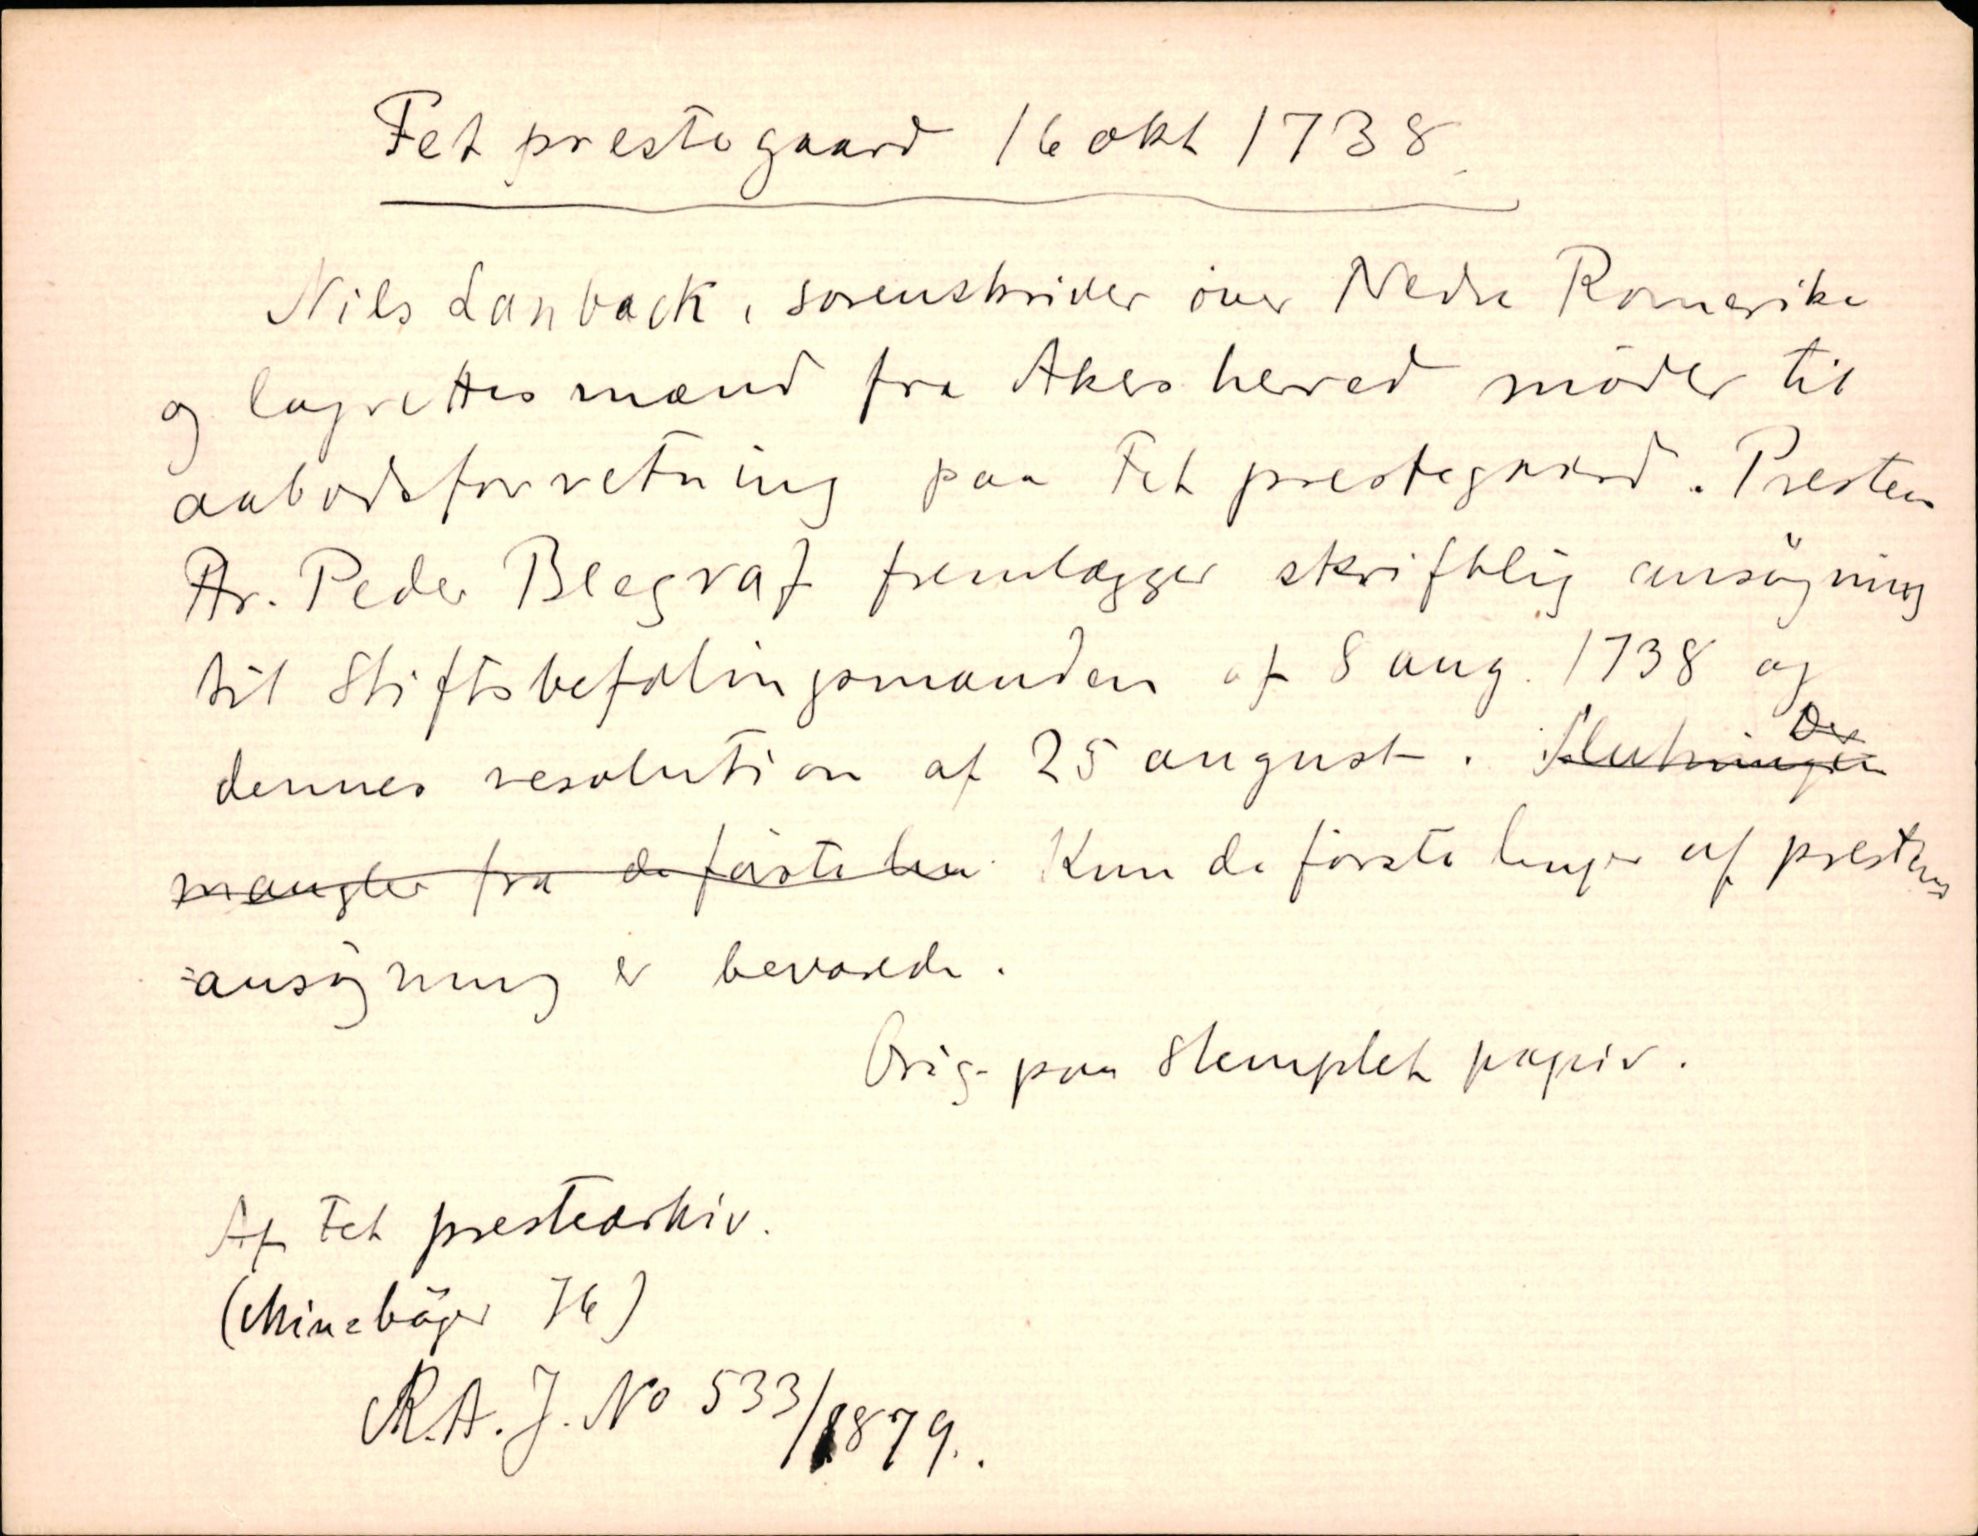 Fet prestegaard 16 okt 1738.
Nils Lanback, sorenskriver over Nedre Romerike
og lagrettesmænd fra Akershered möder til
aabodsforretning paa Fet prestegaard. Presten
Hr. Peder Blegraf fremlægger skriftlig ansögning
til Stiftsbefalingsmanden af 8 aug. 1738 og
dennes resolution af 25 august. Slutningen
mangler fra de förste lin Kun de förste linjer af prestens
ansögning er bevarede.
Orig. paa stemplet papir.
Af Fet prestearkiv.
(Mineböger 76)
R.A. J. No 533/1879.